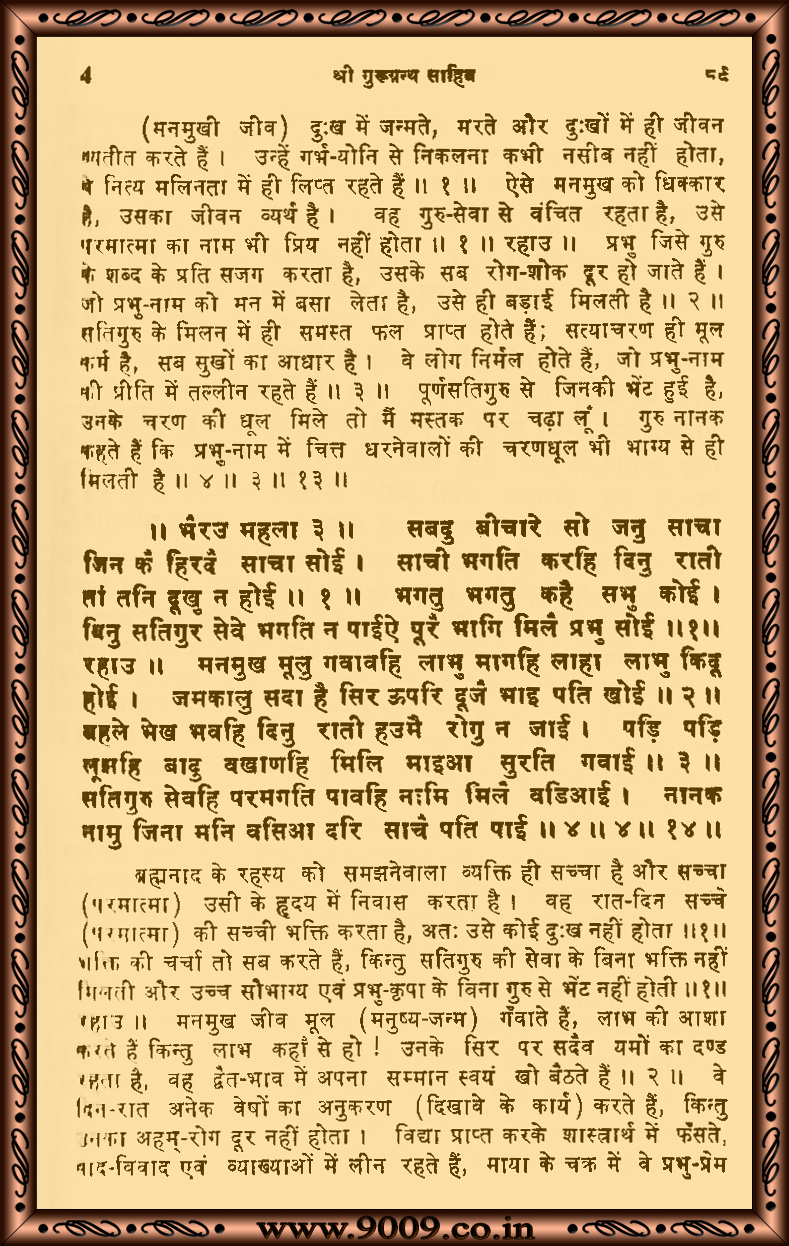 4 श्री गुरूग्रन्थ साहिब ८९
(मनमुखी जीव) दुःख में जन्मते, मरते और दुःखों में ही जीवन
व्यतीत करते हैं। उन्हें गर्भ-योनि से निकलना कभी नसीब नहीं होता,
वे नित्य मलिनता में ही लिप्त रहते हैं ॥ १ ॥ ऐसे मनमुख को धिक्कार
है, उसका जीवन व्यर्थ है। वह गुरु-सेवा से वंचित रहता है, उसे
परमात्मा का नाम भी प्रिय नहीं होता ॥ १ ॥ रहाउ ॥ प्रभु जिसे गुरु
के शब्द के प्रति सजग करता है, उसके सब रोग-शोक दूर हो जाते हैं।
जो प्रभु-नाम को मन में बसा लेता है, उसे ही बड़ाई मिलती है ॥ २ ॥
सतिगुरु के मिलन में ही समस्त फल प्राप्त होते हैं; सत्याचरण ही मूल
कर्म है, सब सुखों का आधार है। वे लोग निर्मल होते हैं, जो प्रभु-नाम
की प्रीति में तल्लीन रहते हैं ॥ ३ ॥ पूर्णसतिगुरु से जिनकी भेंट हुई है,
उनके चरण की धूल मिले तो मैं मस्तक पर चढ़ा लूँ। गुरु नानक
कहते हैं कि प्रभु-नाम में चित्त धरनेवालों की चरणधूल भी भाग्य से ही
मिलती है ॥ ४ ॥ ३ ॥ १३ ॥
॥ भैरउ महला ३ ॥ सबदु बीचारे सो जनु साचा
जिन कै हिरदै साचा सोई। साची भगति करहि दिनु राती
तां तनि दूखु न होई ॥ १ ॥ भगतु भगतु कहै सभु कोई।
बिनु सतिगुर सेवे भगति न पाईऐ पूरै भागि मिलै प्रभु सोई ॥१॥
रहाउ ॥ मनमुख मूलु गवावहि लाभु मागहि लाहा लाभु किदू
होई। जमकालु सदा है सिर ऊपरि दूजै भाइ पति खोई ॥ २ ॥
बहले भेख भवहि दिनु राती हउमै रोगु न जाई। पड़ि पड़ि
लूझहि बादु वखाणहि मिलि माइआ सुरति गवाई ॥ ३ ॥
सतिगुरु सेवहि परमगति पावहि नामि मिलै वडिआई। नानक
नामु जिना मनि वसिआ दरि साचै पति पाई ॥ ४ ॥ ४ ॥ १४ ॥
ब्रह्मनाद के रहस्य को समझनेवाला व्यक्ति ही सच्चा है और सच्चा
(परमात्मा) उसी के हृदय में निवास करता है। वह रात-दिन सच्चे
(परमात्मा) की सच्ची भक्ति करता है, अतः उसे कोई दुःख नहीं होता ॥१॥
भक्ति की चर्चा तो सब करते हैं, किन्तु सतिगुरु की सेवा के बिना भक्ति नहीं
मिलती और उच्च सौभाग्य एवं प्रभु-कृपा के बिना गुरु से भेंट नहीं होती ॥१॥
रहाउ ॥ मनमुख जीव मूल (मनुष्य-जन्म) गँवाते हैं, लाभ की आशा
करते हैं किन्तु लाभ कहाँ से हो ! उनके सिर पर सदैव यमों का दण्ड
रहता है, वह द्वैत-भाव में अपना सम्मान स्वयं खो बैठते हैं ॥ २ ॥ वे
दिन-रात अनेक वेषों का अनुकरण (दिखावे के कार्य) करते हैं, किन्तु
उनका अहम्-रोग दूर नहीं होता। विद्या प्राप्त करके शास्त्रार्थ में फँसते,
वाद-विवाद एवं व्याख्याओं में लीन रहते हैं, माया के चक्र में वे प्रभु-प्रेम
www.9009.co.in